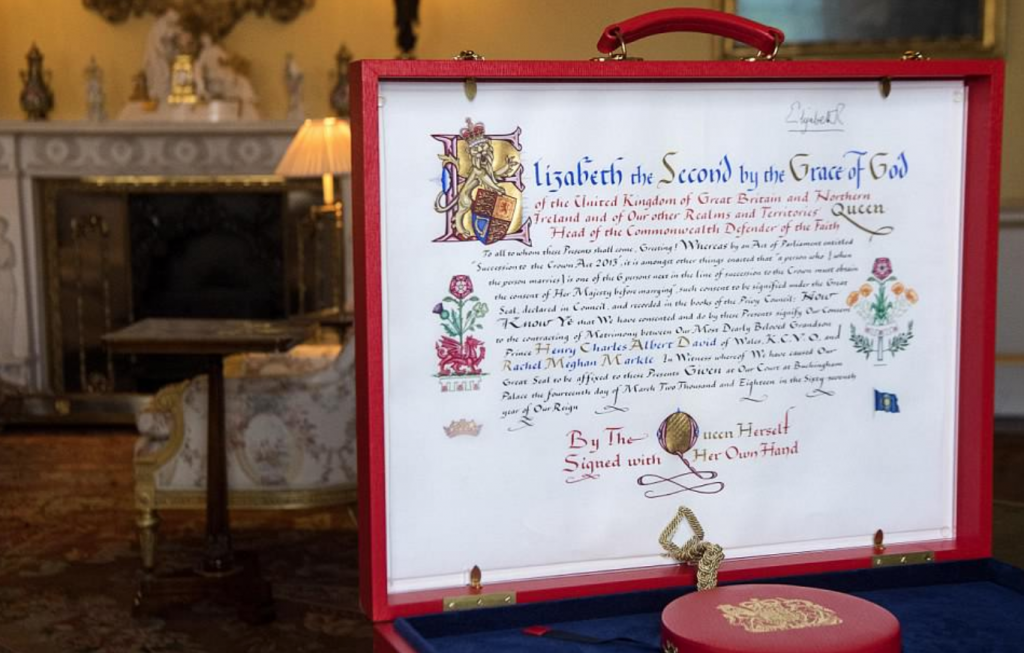 Elizabeth R
Elizabeth the Second by the Grace of God
of the United Kingdom of Great Britain and Northern
Ireland and of Our other Realms and Territories Queen
Head of the Commonwealth Defender of the Faith
To all to whom these Presents shall come, Greeting! Whereas by an Act of Parliament entitled
"Succession to the Crown Act 2013", it is amongst other things enacted that "a person who (when
the person marries) is one of the 6 persons next in the line of succession to the Crown must obtain
the consent of Her Majesty before marrying", such consent to be signified under the Great
Seal, declared in Council, and recorded in the books of the Privy Council: Now
Know Ye that We have consented and do by these Presents signify Our Consent
to the contracting of Matrimony between Our Most Dearly Beloved Grandson
Prince Henry Charles Albert David of Wales, K.C.V.O., and
Rachel Meghan Markle In Witness whereof We have caused Our
Great Seal to be affixed to these Presents Given at Our Court at Buckingham
Palace the fourteenth day of March Two Thousand and Eighteen in the Sixty-seventh
year of Our Reign
By The Queen Herself
Signed with Her Own Hand